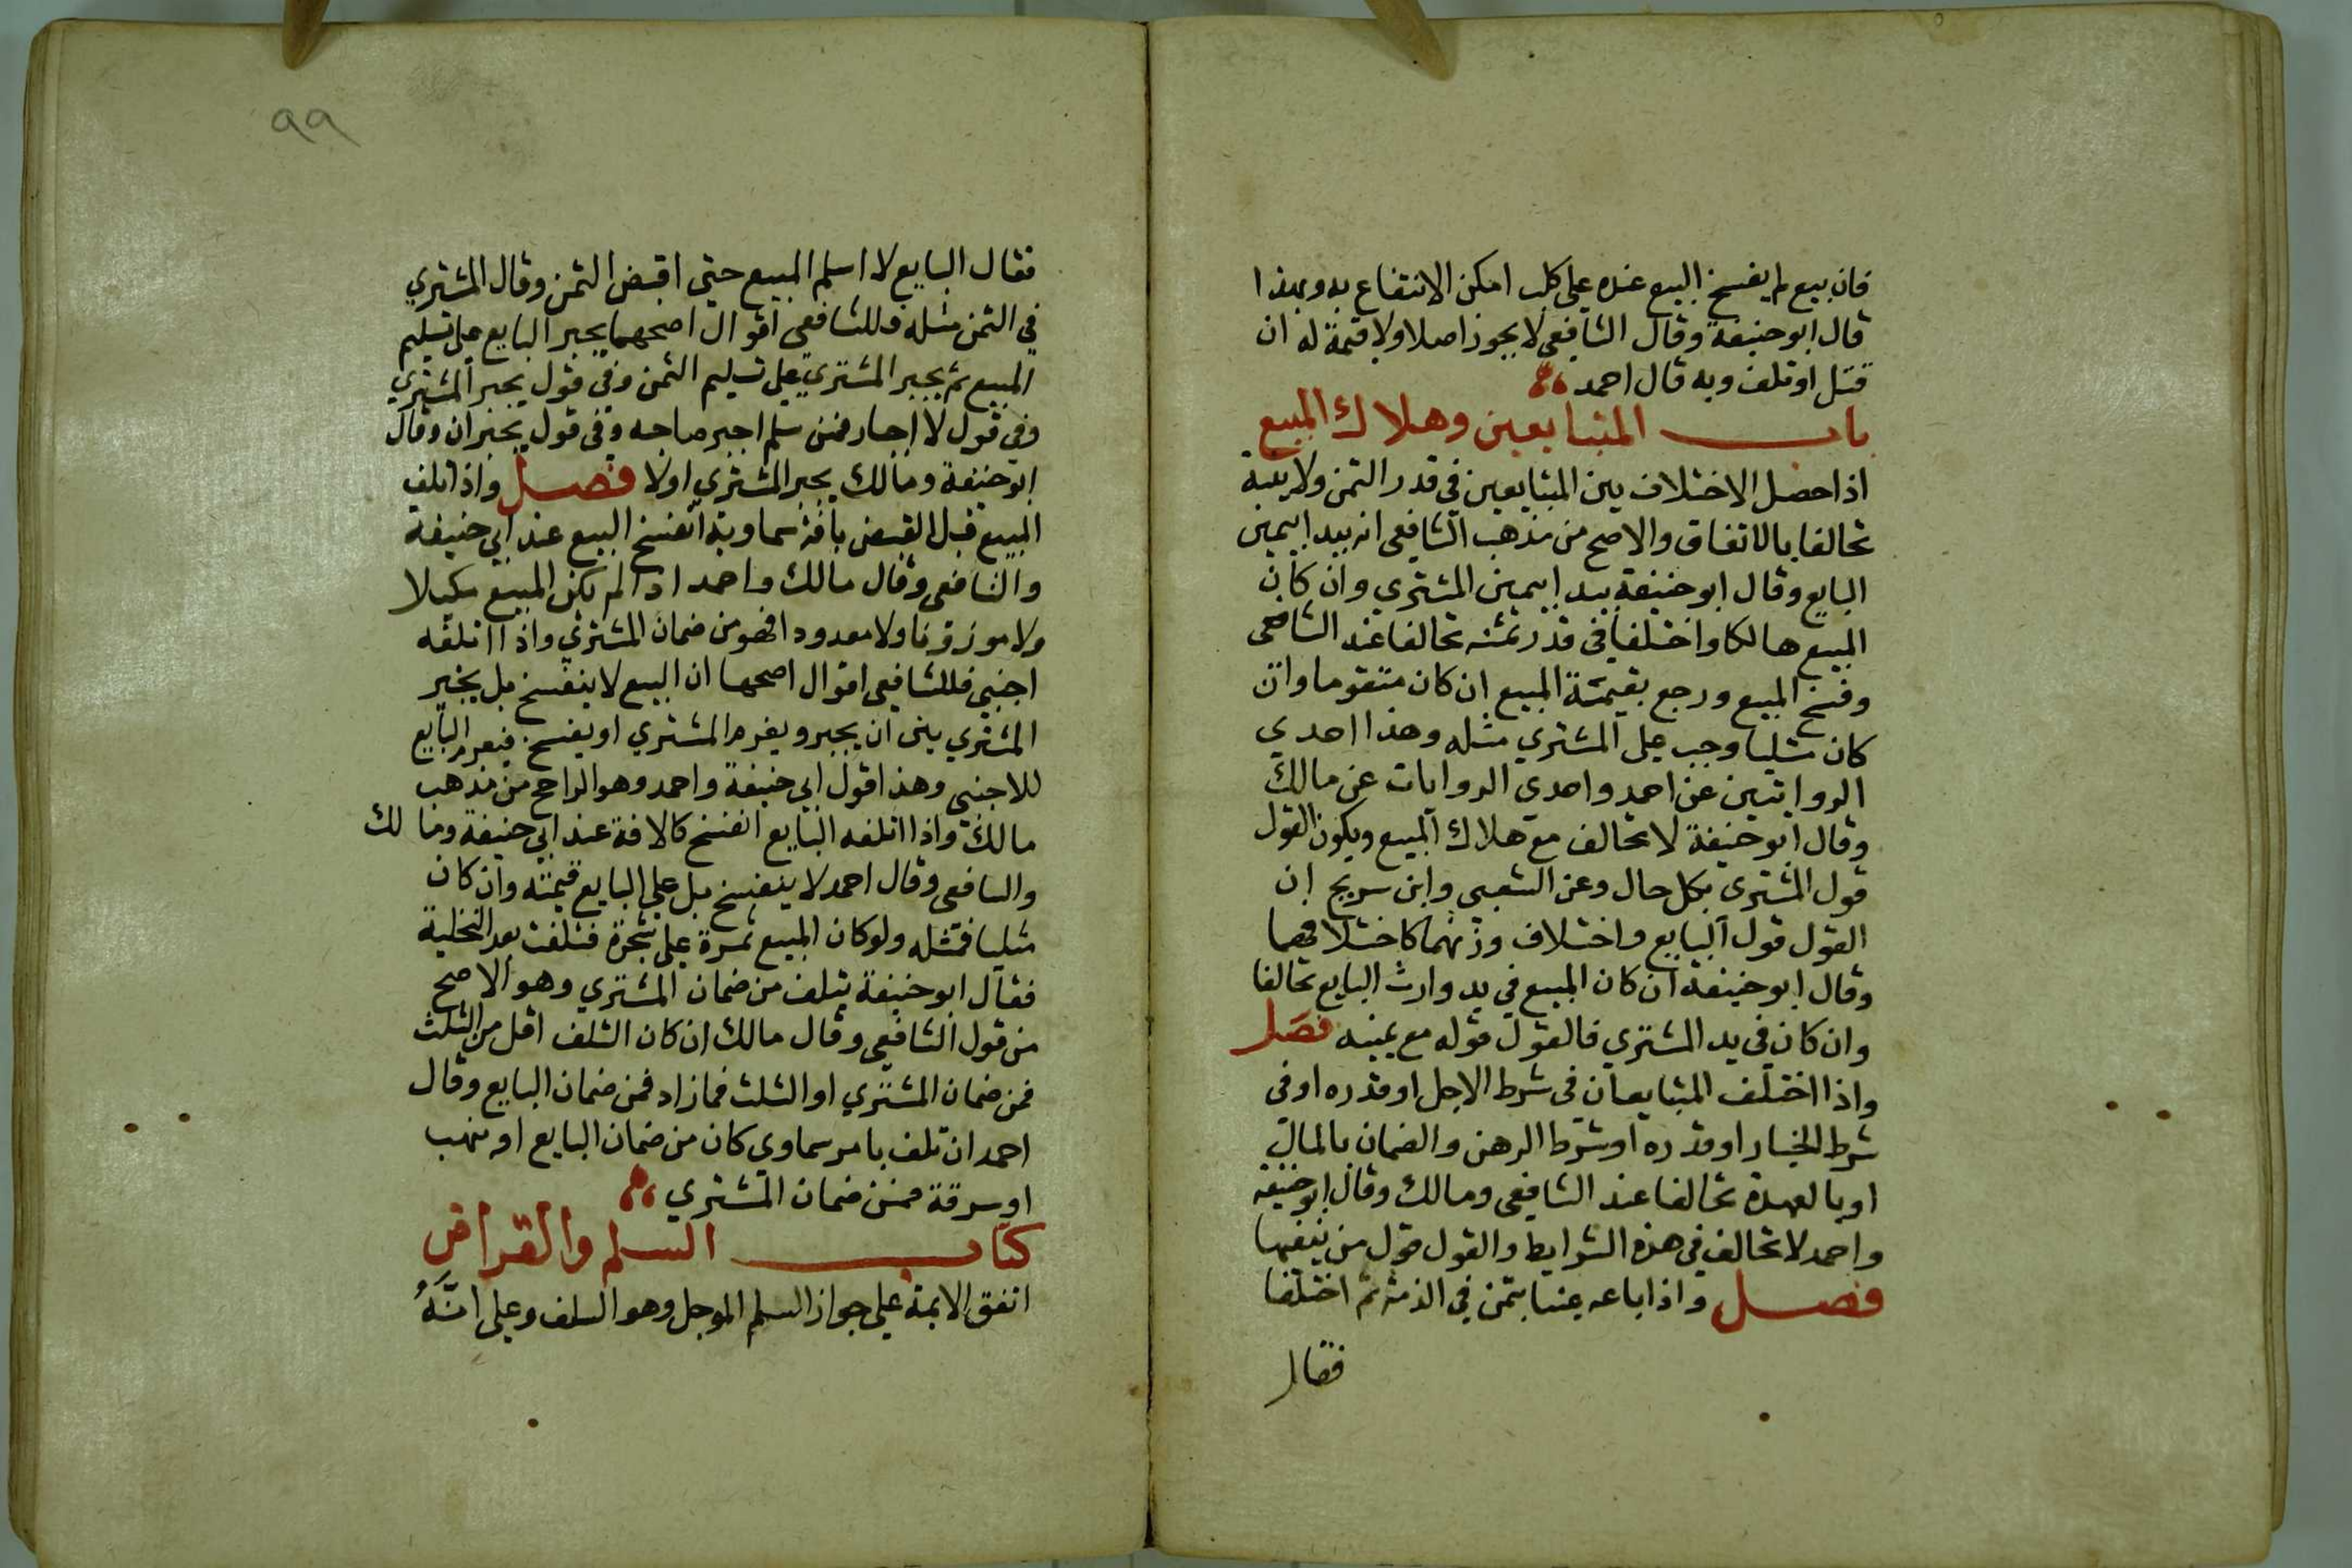 فان بيع لم يفسخ البيع عنده على كلب امكن الانتفاع به وبهذا
قال ابو حنيفة وقال الشافعي لا يجوز اصلا ولا قيمة له ان
قتل او تلف وبه قال احمد
باب المتبايعين وهلاك المبيع
اذا حصل الاختلاف بين المتبايعين في قدر الثمن ولا بينة
تحالفا بالاتفاق والاصح من مذهب الشافعي انه يبدا بيمين
البايع وقال ابو حنيفة يبدا بيمين المشتري وان كان
المبيع هالكا واختلفا في قدر ثمنه تحالفا عند الشافعي
وفسخ المبيع ورجع بقيمة المبيع ان كان متقوما وان
كان مثليا وجب على المشتري مثله وهذا احدي
الروايتين عن احمد واحدي الروايات عن مالك
وقال ابو حنيفة لا تحالف مع هلاك المبيع ويكون القول
قول المشتري بكل حال وعن الشعبي وابن سريج ان
القول قول البايع واختلاف ورثتهما كاختلافهما
وقال ابو حنيفة ان كان المبيع في يد وارث البايع تحالفا
وان كان في يد المشتري فالقول قوله مع يمينه فصل
واذا اختلف المتبايعان في شرط الاجل او قدره او في
شرط الخيار او قدره او شرط الرهن والضمان بالمال
او بالعهدة تحالفا عند الشافعي ومالك وقال ابو حنيفة
واحمد لا تحالف في هذه الشرايط والقول قول من ينفيها
فصل واذا باعه عينا بثمن في الذمة ثم اختلفا
فقال
٩٩
فقال البايع لا اسلم المبيع حتى اقبض الثمن وقال المشتري
في الثمن مثله فللشافعي اقوال اصحهما يجبر البايع على تسليم
المبيع ثم يجبر المشتري على تسليم الثمن وفي قول يجبر المشتري
وفي قول لا اجبار فمن سلم اجبر صاحبه وفي قول يجبران وقال
ابو حنيفة ومالك يجبر المشتري اولا فصل واذا تلف
المبيع قبل القبض بافة سماوية انفسخ البيع عند ابي حنيفة
والشافعي وقال مالك واحمد اذا لم يكن المبيع مكيلا
ولا موزونا ولا معدودا فهو من ضمان المشتري واذا اتلفه
اجنبي فللشافعي اقوال اصحها ان البيع لا ينفسخ بل يخير
المشتري بين ان يجبر ويغرم المشتري او يفسخ فيغرم البايع
للاجنبي وهذا قول ابي حنيفة واحمد وهو الراجح من مذهب
مالك واذا اتلفه البايع انفسخ كالافة عند ابي حنيفة ومالك
والشافعي وقال احمد لا ينفسخ بل على البايع قيمته وان كان
مثليا فمثله ولو كان المبيع ثمرة على شجرة فتلفت بعد التخلية
فقال ابو حنيفة يتلف من ضمان المشتري وهو الاصح
من قول الشافعي وقال مالك ان كان التلف اقل من الثلث
فمن ضمان المشتري او الثلث فما زاد فمن ضمان البايع وقال
احمد ان تلف بامر سماوي كان من ضمان البايع او بنهب
او سرقة فمن ضمان المشتري
كتاب السلم والقراض
اتفق الايمة على جواز السلم الموجل وهو السلف وعلى انَّهُ